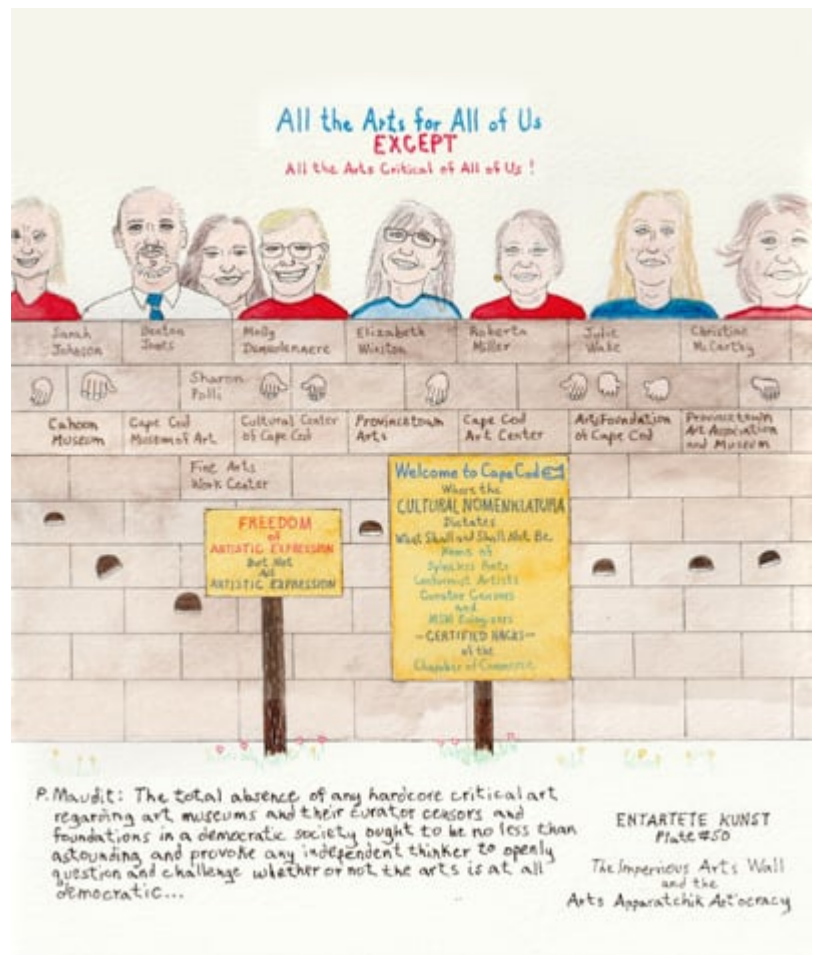 All the Arts for All of Us
EXCEPT
All the Arts Critical of All of Us !
Sarah Johnson
Benton Jones
Molly
Elizabeth Winston
Roberta Miller
Julie Wake
Christine McCarthy
Sharon Polli
Cahoon Museum
Cape Cod Museum of Art
Cultural Center of Cape Cod
Provincetown Arts
Cape Cod Art Center
Arts Foundation of Cape Cod
Provincetown Art Association and Museum
Fine Arts Work Center
FREEDOM
of
ARTISTIC EXPRESSION
But Not
All
ARTISTIC EXPRESSION
Welcome to Cape Cod
Where the
CULTURAL NOMENKLATURA
Dictates
What Shall and Shall Not Be
Home of
Spineless Poets
Conformist Artists
Curator Censors
and
MSM Eulogizers
—CERTIFIED HACKS—
of the
Chamber of Commerce
P. Maudit: The total absence of any hardcore critical art
regarding art museums and their curator censors and
foundations in a democratic society ought to be no less than
astounding and provoke any independent thinker to openly
question and challenge whether or not the arts is at all
democratic...
ENTARTETE KUNST
Plate #50
The Impervious Arts Wall
and the
Arts Apparatchik Art'ocracy